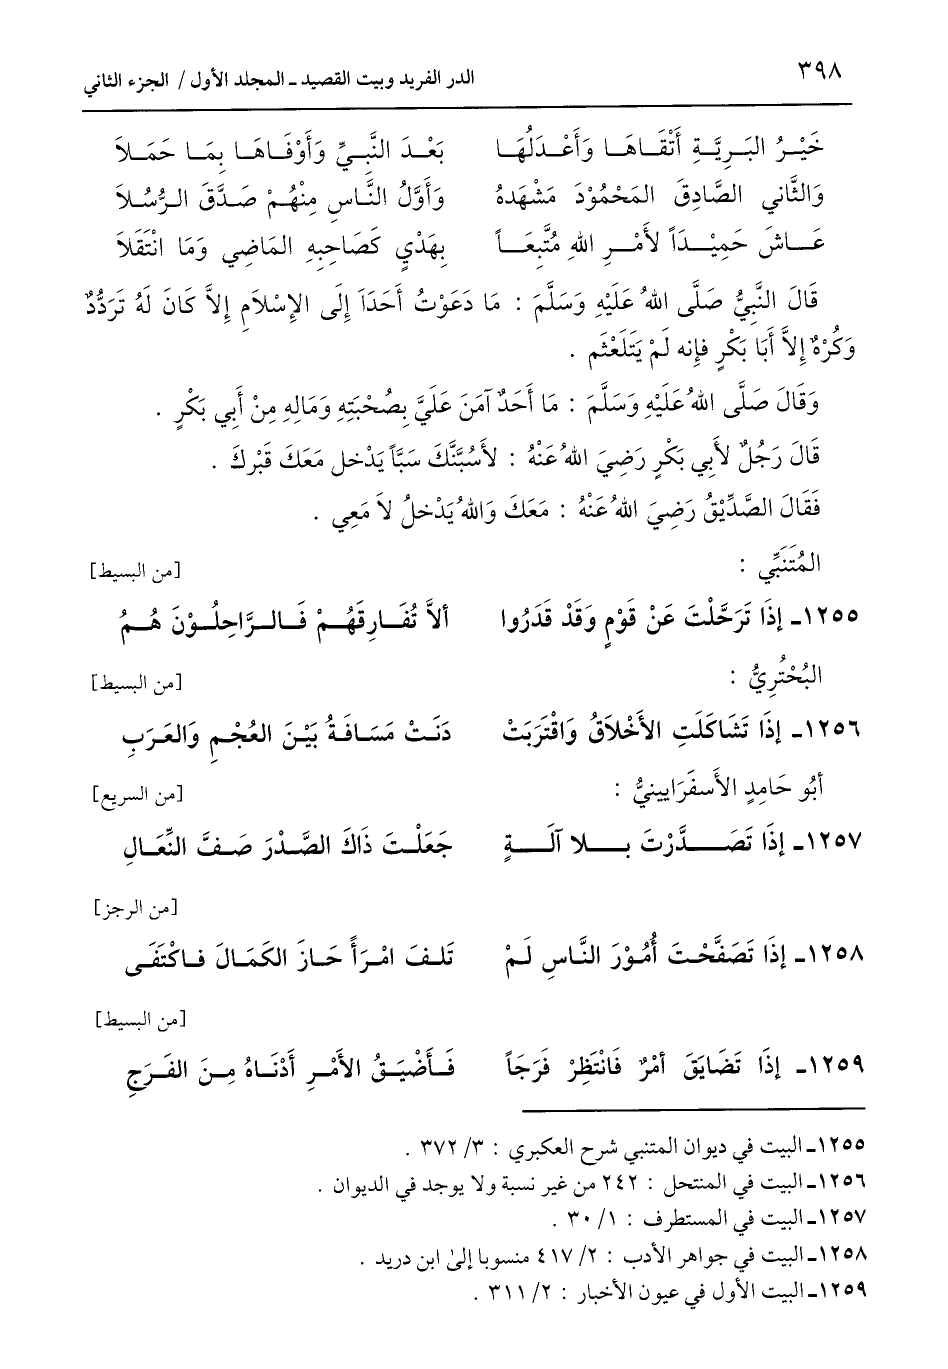 ٣٩٨ الدر الفريد وبيت القصيد ـ المجلد الأول / الجزء الثاني
خَيْرُ البَرِيَّةِ أَتْقَاهَا وَأَعْدَلُهَا بَعْدَ النَّبِيِّ وَأَوْفَاهَا بِمَا حَمَلاَ
وَالثَّانِي الصَّادِقَ المَحْمُوْدَ مَشْهَدهُ وَأَوَّلُ النَّاسِ مِنْهُمْ صَدَّقَ الرُّسُلاَ
عَاشَ حَمِيْدَاً لأَمْرِ اللهِ مُتَّبِعَاً بِهَدْيِ كَصَاحِبِهِ المَاضِي وَمَا انْتَقَلاَ
قَالَ النَّبِيُّ صَلَّى اللهُ عَلَيْهِ وَسَلَّمَ : مَا دَعَوْتُ أَحَدَاً إِلَى الإِسْلَامِ إِلاَّ كَانَ لَهُ تَرَدُّدٌ
وَكُرْهٌ إِلاَّ أَبَا بَكْرٍ فإِنه لَمْ يَتَلَعْثَم .
وَقَالَ صَلَّى اللهُ عَلَيْهِ وَسَلَّمَ : مَا أَحَدٌ آمَنَ عَلَيَّ بِصُحْبَتِهِ وَمَالِهِ مِنْ أَبِي بَكْرٍ .
قَالَ رَجُلٌ لأَبِي بَكْرٍ رَضِيَ اللهُ عَنْهُ : لأَسُبَّنَّكَ سَبَّاً يَدْخل مَعَكَ قَبْركَ .
فَقَالَ الصَّدِّيْقُ رَضِيَ اللهُ عَنْهُ : مَعَكَ وَاللهُ يَدْخلُ لاَ مَعِي .
المُتَنَبِّي : [من البسيط]
١٢٥٥ـ إِذَا تَرَحَّلْتَ عَنْ قَوْمٍ وَقَدْ قَدَرُوا أَلاَّ تُفَارِقَهُمْ فَالرَّاحِلُوْنَ هُمُ
البُحْتُرِيُّ : [من البسيط]
١٢٥٦ـ إِذَا تَشَاكَلَتِ الأَخْلاَقُ وَاقْتَرَبَتْ دَنَتْ مَسَافَةُ بَيْنَ العُجْمِ وَالعَرَبِ
أَبُو حَامِدٍ الأَسفَرَايينيُّ : [من السريع]
١٢٥٧ـ إِذَا تَصَدَّرْتَ بِلا آلَةٍ جَعَلْتَ ذَاكَ الصَّدْرَ صَفَّ النِّعَالِ
[من الرجز]
١٢٥٨ـ إِذَا تَصَفَّحْتَ أُمُوْرَ النَّاسِ لَمْ تَلفَ امْرَأً حَازَ الكَمَالَ فاكْتَفَى
[من البسيط]
١٢٥٩ـ إِذَا تَضَايَقَ أَمْرٌ فَانْتَظِرْ فَرَجَاً فَأَضْيَقُ الأَمْرِ أَدْنَاهُ مِنَ الفَرَجِ
١٢٥٥ـ البيت في ديوان المتنبي شرح العكبري : ٣/ ٣٧٢ .
١٢٥٦ـ البيت في المنتحل : ٢٤٢ من غير نسبة ولا يوجد في الديوان .
١٢٥٧ـ البيت في المستطرف : ١/ ٣٠ .
١٢٥٨ـ البيت في جواهر الأدب : ٢/ ٤١٧ منسوبا إلىٰ ابن دريد .
١٢٥٩ـ البيت الأول في عيون الأخبار : ٢/ ٣١١ .